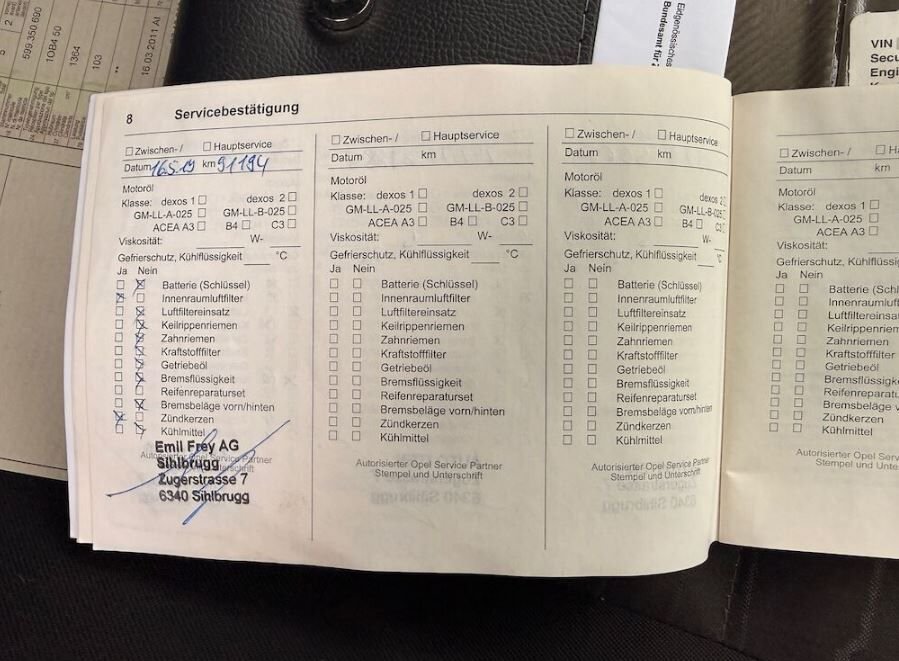 2
599.350.690
1OB4 50
1364
103
**
16.03.2011 At
Eidgenössisches
Bundesamt für
VIN
Secu
Engi
8 Servicebestätigung
Zwischen- / Hauptservice
Datum 16.5.19 km 91194
Motoröl
Klasse: dexos 1 dexos 2
GM-LL-A-025 GM-LL-B-025
ACEA A3 B4 C3
Viskosität: W-
Gefrierschutz, Kühlflüssigkeit °C
Ja Nein
Batterie (Schlüssel)
Innenraumluftfilter
Luftfiltereinsatz
Keilrippenriemen
Zahnriemen
Kraftstofffilter
Getriebeöl
Bremsflüssigkeit
Reifenreparaturset
Bremsbeläge vorn/hinten
Zündkerzen
Kühlmittel
Emil Frey AG
Autorisierter Opel Service Partner
Sihlbrugg
Stempel und Unterschrift
Zugerstrasse 7
6340 Sihlbrugg
Zwischen- / Hauptservice
Datum km
Motoröl
Klasse: dexos 1 dexos 2
GM-LL-A-025 GM-LL-B-025
ACEA A3 B4 C3
Viskosität: W-
Gefrierschutz, Kühlflüssigkeit °C
Ja Nein
Batterie (Schlüssel)
Innenraumluftfilter
Luftfiltereinsatz
Keilrippenriemen
Zahnriemen
Kraftstofffilter
Getriebeöl
Bremsflüssigkeit
Reifenreparaturset
Bremsbeläge vorn/hinten
Zündkerzen
Kühlmittel
Autorisierter Opel Service Partner
Stempel und Unterschrift
Zwischen- / Hauptservice
Datum km
Motoröl
Klasse: dexos 1 dexos 2
GM-LL-A-025 GM-LL-B-025
ACEA A3 B4 C3
Viskosität: W-
Gefrierschutz, Kühlflüssigkeit °C
Ja Nein
Batterie (Schlüssel)
Innenraumluftfilter
Luftfiltereinsatz
Keilrippenriemen
Zahnriemen
Kraftstofffilter
Getriebeöl
Bremsflüssigkeit
Reifenreparaturset
Bremsbeläge vorn/hinten
Zündkerzen
Kühlmittel
Autorisierter Opel Service Partner
Stempel und Unterschrift
Zwischen- / Ha
Datum km
Motoröl
Klasse: dexos 1
GM-LL-A-025
ACEA A3
Viskosität:
Gefrierschutz, Kühlflüssig
Ja Nein
Batterie (Schlü
Innenraumluft
Luftfiltereinsat
Keilrippenriem
Zahnriemen
Kraftstofffilter
Getriebeöl
Bremsflüssigk
Reifenreparatu
Bremsbeläge v
Zündkerzen
Kühlmittel
Autorisierter Opel Servi
Stempel und Unters